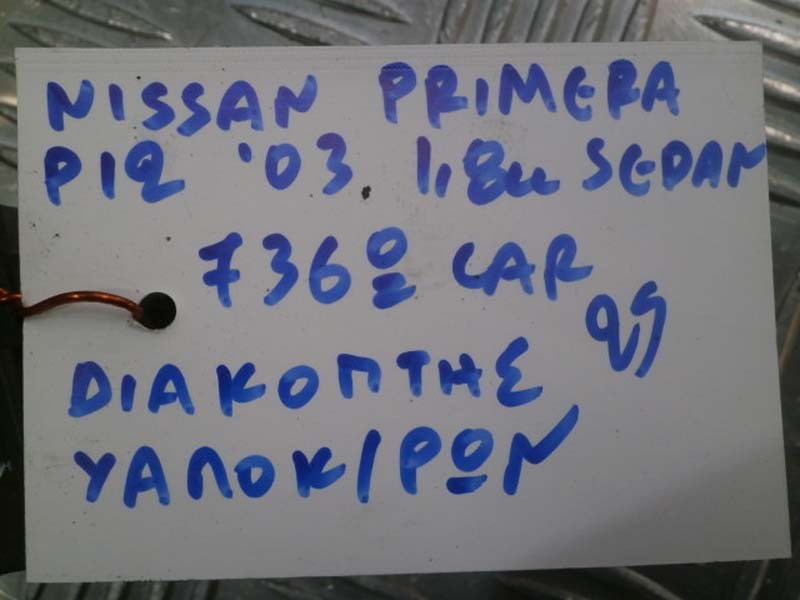 NISSAN PRIMERA
P12 '03 1,8cc SEDAN
736º CAR
ΔΙΑΚΟΠΤΗΣ
ΥΑΛΟΚ/ΡΩΝ